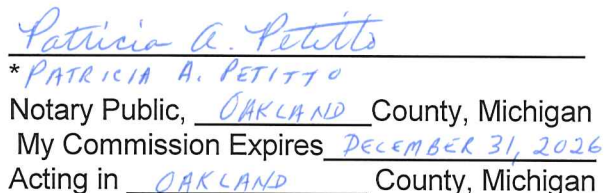 Patricia A. Petitto
* PATRICIA A. PETITTO
Notary Public, OAKLAND County, Michigan
My Commission Expires DECEMBER 31, 2026
Acting in OAKLAND County, Michigan